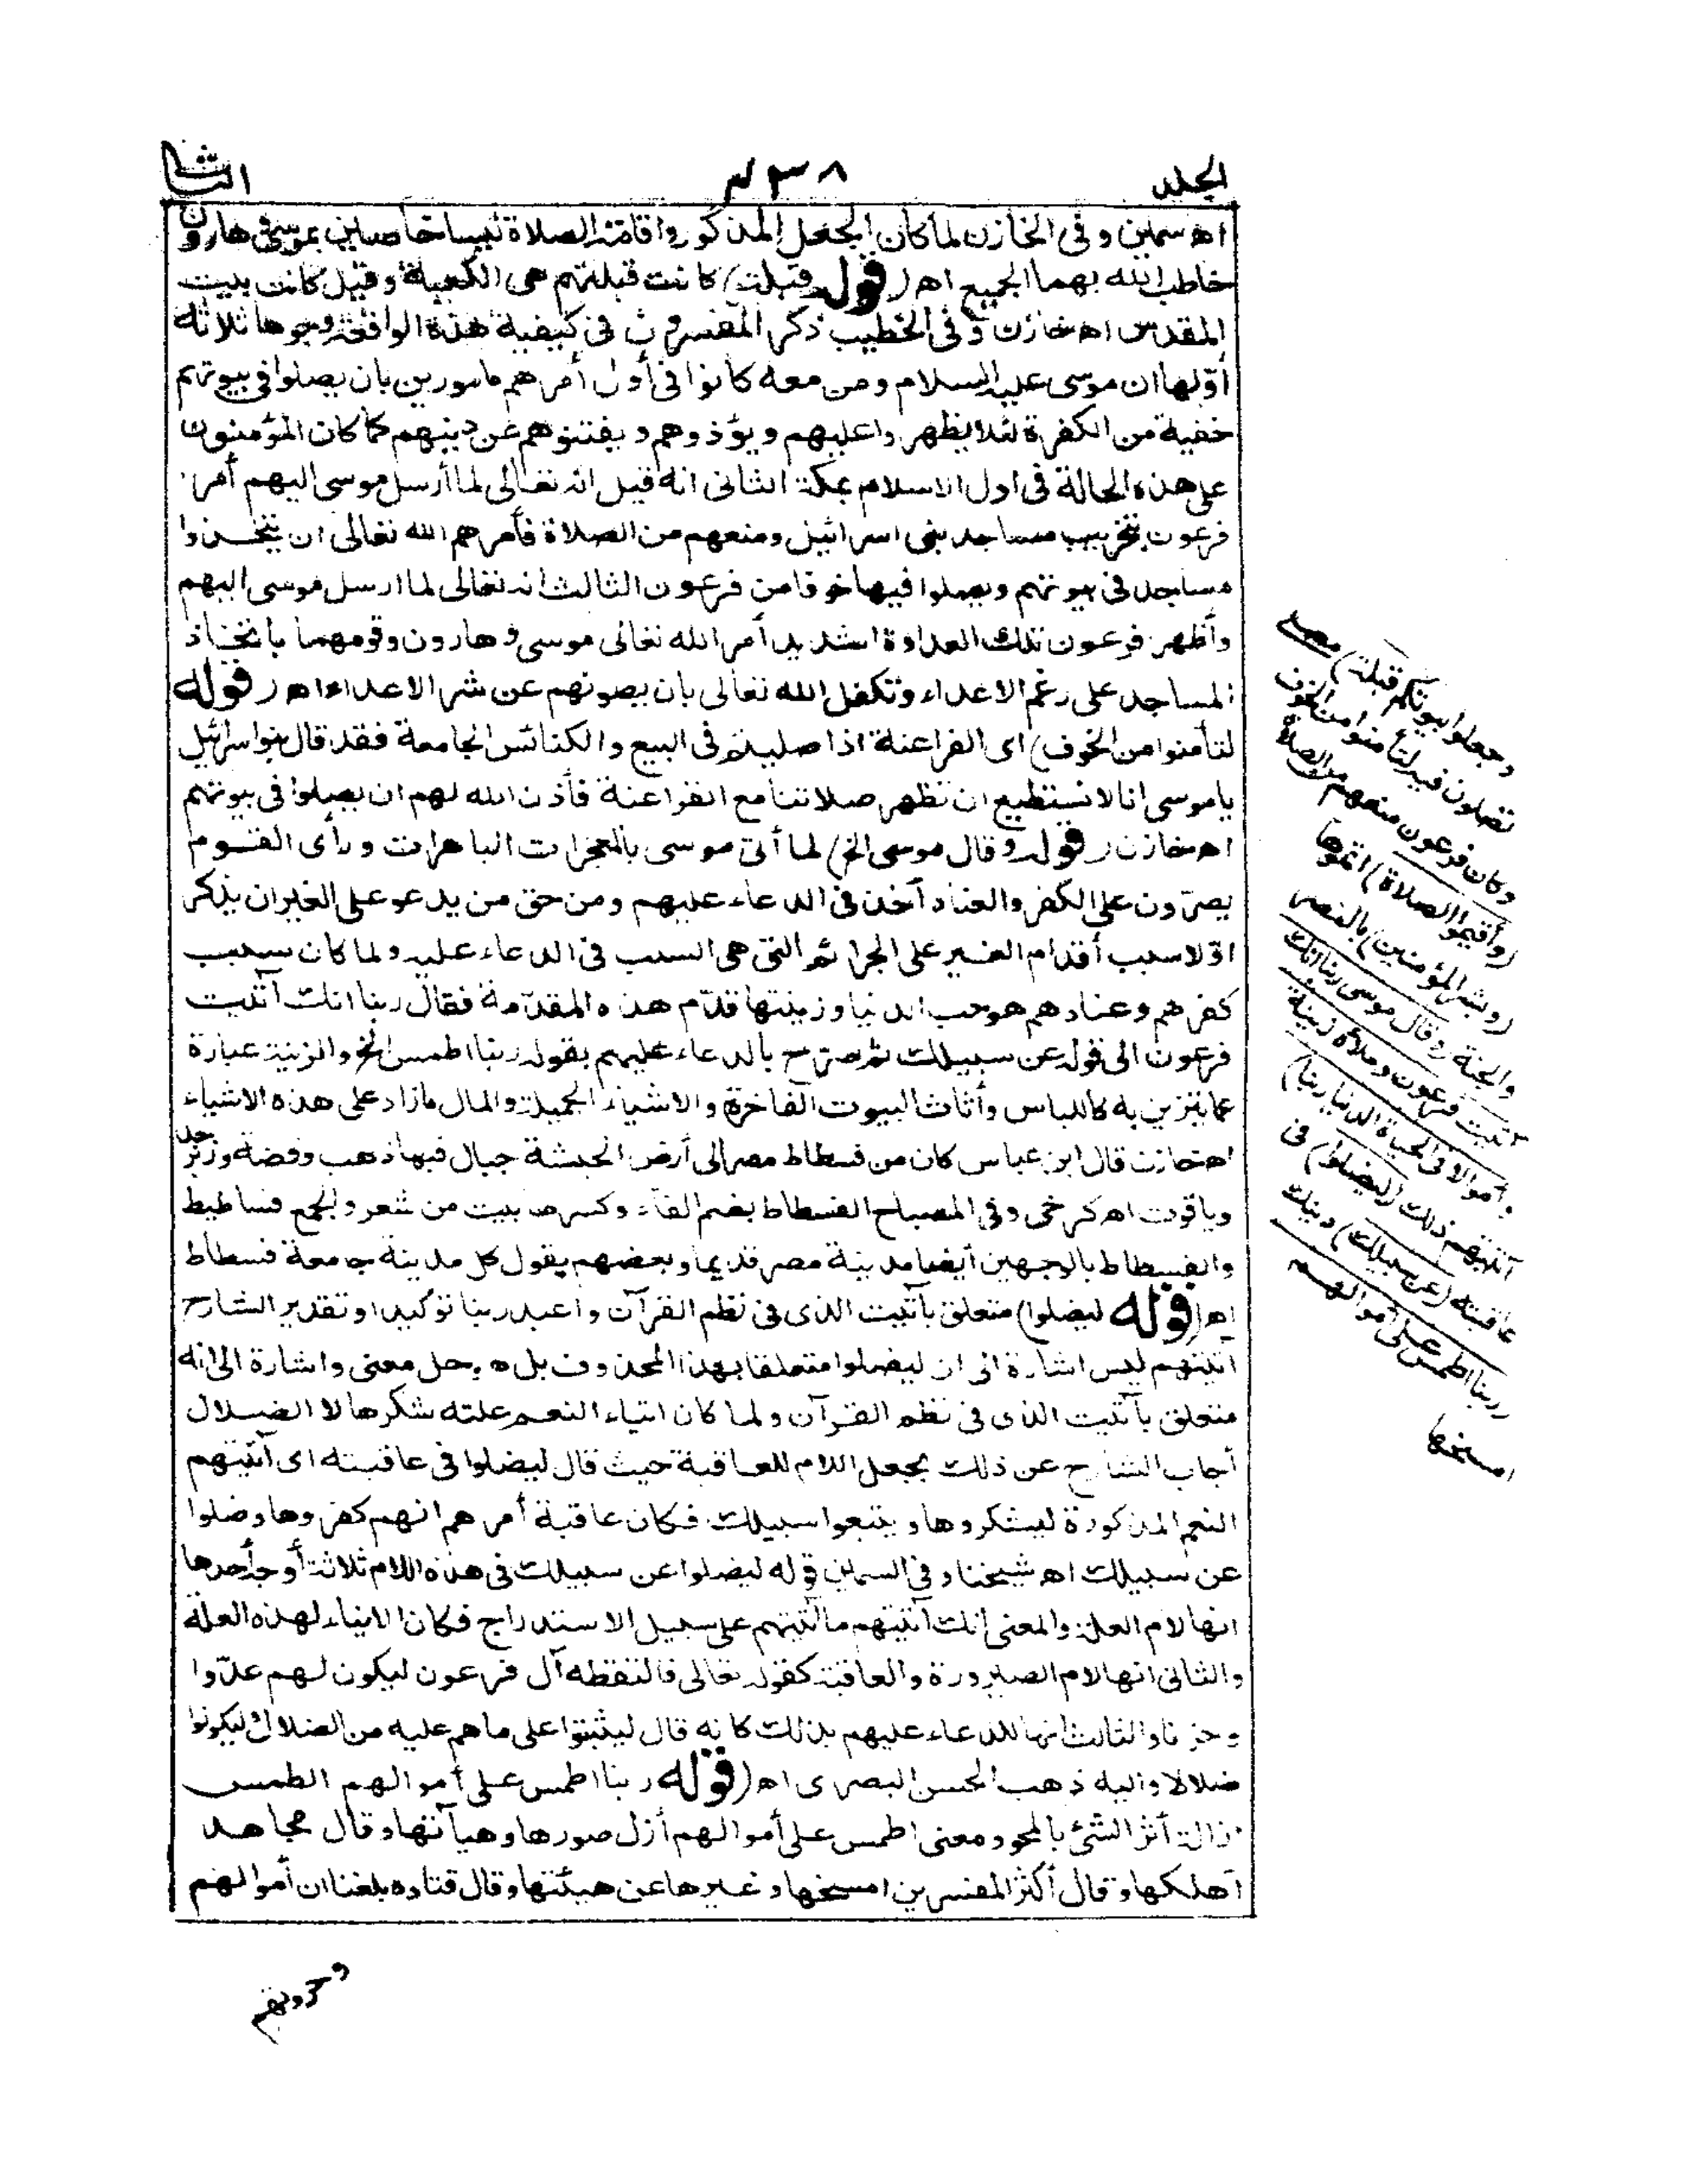 الجلد
٤٣٨
الثانى
اه سمين وفى الخازن لما كان الجعل المذكور واقامة الصلاة ليسا خاصين بموسى وهارون
خاطب الله بهما الجميع اه (قوله قبلة) كانت قبلتهم هى الكعبة وقيل كانت بيت
المقدس اه خازن وفى الخطيب ذكر المفسرون فى كيفية هذه الواقعة وجوها ثلاثة
أوّلها ان موسى عليه السلام ومن معه كانوا فى أول أمرهم مامورين بان يصلوا فى بيوتهم
خفية من الكفرة لئلا يظهروا عليهم ويؤذوهم ويفتنوهم عن دينهم كما كان المؤمنون
على هذه الحالة فى اول الاسلام بمكة الثانى انه قيل انه تعالى لما أرسل موسى اليهم أمر
فرعون بتخريب مساجد بنى اسرائيل ومنعهم من الصلاة فأمرهم الله تعالى ان يتخذوا
مساجد فى بيوتهم ويصلوا فيها خوفا من فرعون الثالث انه تعالى لما ارسل موسى اليهم
وأظهر فرعون تلك العداوة الشديد أمر الله تعالى موسى وهارون وقومهما باتخاذ
المساجد على رغم الاعداء وتكفل الله تعالى بان يصونهم عن شر الاعداء اه (قوله
لتأمنوا من الخوف) اى الفراعنة اذا صليتم فى البيع والكنائس الجامعة فقد قال بنو اسرائيل
ياموسى انا لا نستطيع ان نظهر صلاتنا مع الفراعنة فأذن الله لهم ان يصلوا فى بيوتهم
اه خازن (قوله وقال موسى الخ) لما أتى موسى بالمعجزات الباهرات ورأى القوم
يصرّون على الكفر والعناد أخذ فى الدعاء عليهم ومن حق من يدعو على الغير ان يذكر
اوّلا سبب أقدام الغير على الجرائم التى هى السبب فى الدعاء عليه ولما كان سبب
كفرهم وعنادهم هو حب الدنيا وزينتها قدّم هذه المقدّمة فقال ربنا انك آتيت
فرعون الى قوله عن سبيلك ثم صرّح بالدعاء عليهم بقوله ربنا اطمس الخ والزينة عبارة
عما يتزين به كاللباس وأثاث البيوت الفاخرة والاشياء الجميلة والمال مازاد على هذه الاشياء
اه خازن قال ابن عباس كان من فسطاط مصر الى أرض الحبشة جبال فيها ذهب وفضة وزبرجد
وياقوت اه كرخى وفى المصباح الفسطاط بضم الفاء وكسرها بيت من شعر والجمع فساطيط
والفسطاط بالوجهين أيضا مدينة مصر قديما وبعضهم يقول كل مدينة جامعة فسطاط
اه (قوله ليضلوا) متعلق بآتيت الذى فى نظم القرآن واعيد ربنا توكيدا وتقدير الشارح
آتيتهم ليس اشارة الى ان ليضلوا متعلقا بهذا المحذوف بل ه حل معنى واشارة الى انه
متعلق بآتيت الذى فى نظم القرآن ولما كان ايتاء النعم علته شكرها لا الضلال
أجاب الشارح عن ذلك بجعل اللام للعاقبة حيث قال ليضلوا فى عاقبته اى آتيتهم
النعم المذكورة ليشكروها ويتبعوا سبيلك فكان عاقبة أمرهم انهم كفروها وضلوا
عن سبيلك اه شيخنا وفى السمين قوله ليضلوا عن سبيلك فى هذه اللام ثلاثة أوجه أحدها
انها لام العلة والمعنى انك آتيتهم ما آتيتهم على سبيل الاستدراج فكان الايتاء لهذه العلة
والثانى انها لام الصيرورة والعاقبة كقوله تعالى فالتقطه آل فرعون ليكون لهم عدّوا
وحزنا والثالث انها للدعاء عليهم بذلك كانه قال ليثبتوا على ماهم عليه من الضلال وليكونوا
ضلالا واليه ذهب الحسن البصرى اه (قوله ربنا اطمس على أموالهم الطمس
ازالة أثر الشئ بالمحو ومعنى اطمس على أموالهم أزل صورها وهيآتها وقال مجاهد
أهلكها وقال أكثر المفسرين امسخها وغيرها عن هيئتها وقال قتاده بلغنا ان أموالهم
وحروثهم
(واجعلوا بيوتكم قبلة) مصلى
تصلون فيه لتأمنوا من الخوف
وكان فرعون منعهم من الصلاة
(وأقيموا الصلاة) اتموها
(وبشر المؤمنين) بالنصر
والجنة (وقال موسى ربنا انك
آتيت فرعون وملأه زينة
وأموالا فى الحياة الدنيا ربنا)
آتيتهم ذلك (ليضلوا) فى
عاقبته (عن سبيلك) دينك
(ربنا اطمس على أموالهم
امسخها